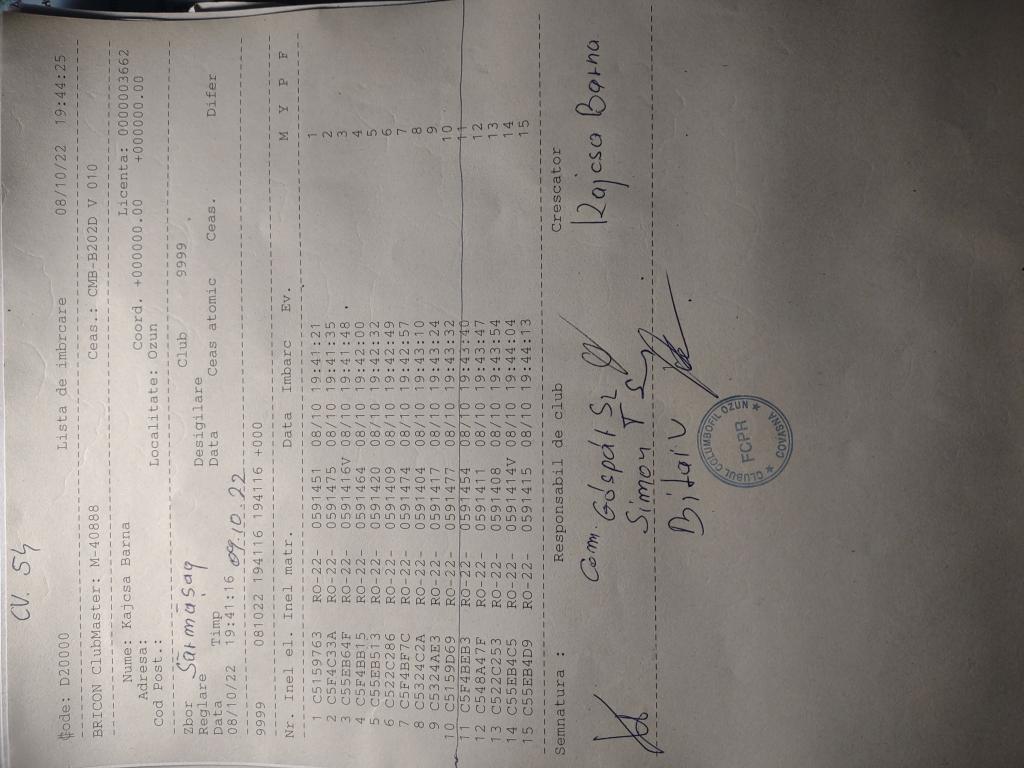 CV. 54
¢ode: D20000 Lista de imbrcare 08/10/22 19:44:25
BRICON ClubMaster: M-40888 Ceas.: CMB-B202D V 010
Nume: Kajcsa Barna Licenta: 0000003662
Adresa: Coord. +000000.00 +000000.00
Cod Post.: Localitate: Ozun
Zbor Sărmășag Club 9999
Reglare Desigilare
Data Timp Data Ceas atomic Ceas. Difer
08/10/22 19:41:16 09.10.22
9999 081022 194116 194116 +000
Nr. Inel el. Inel matr. Data Imbarc Ev. M Y P F
1 C5159763 RO-22- 0591451 08/10 19:41:21 1
2 C5F4C33A RO-22- 0591475 08/10 19:41:35 2
3 C55EB64F RO-22- 0591416V 08/10 19:41:48 3
4 C5F4BB15 RO-22- 0591464 08/10 19:42:00 4
5 C55EB513 RO-22- 0591420 08/10 19:42:32 5
6 C522C286 RO-22- 0591409 08/10 19:42:49 6
7 C5F4BF7C RO-22- 0591474 08/10 19:42:57 7
8 C5324C2A RO-22- 0591404 08/10 19:43:10 8
9 C5324AE3 RO-22- 0591417 08/10 19:43:24 9
10 C5159D69 RO-22- 0591477 08/10 19:43:32 10
11 C5F4BEB3 RO-22- 0591454 08/10 19:43:40 11
12 C548A47F RO-22- 0591411 08/10 19:43:47 12
13 C522C253 RO-22- 0591408 08/10 19:43:54 13
14 C55EB4C5 RO-22- 0591414V 08/10 19:44:04 14
15 C55EB4D9 RO-22- 0591415 08/10 19:44:13 15
Semnatura : Responsabil de club Crescator
Com. Gáspár Sz Kajcsa Barna
Simon T
Bitai V
CLUBUL COLUMBOFIL OZUN
FCPR
COVASNA